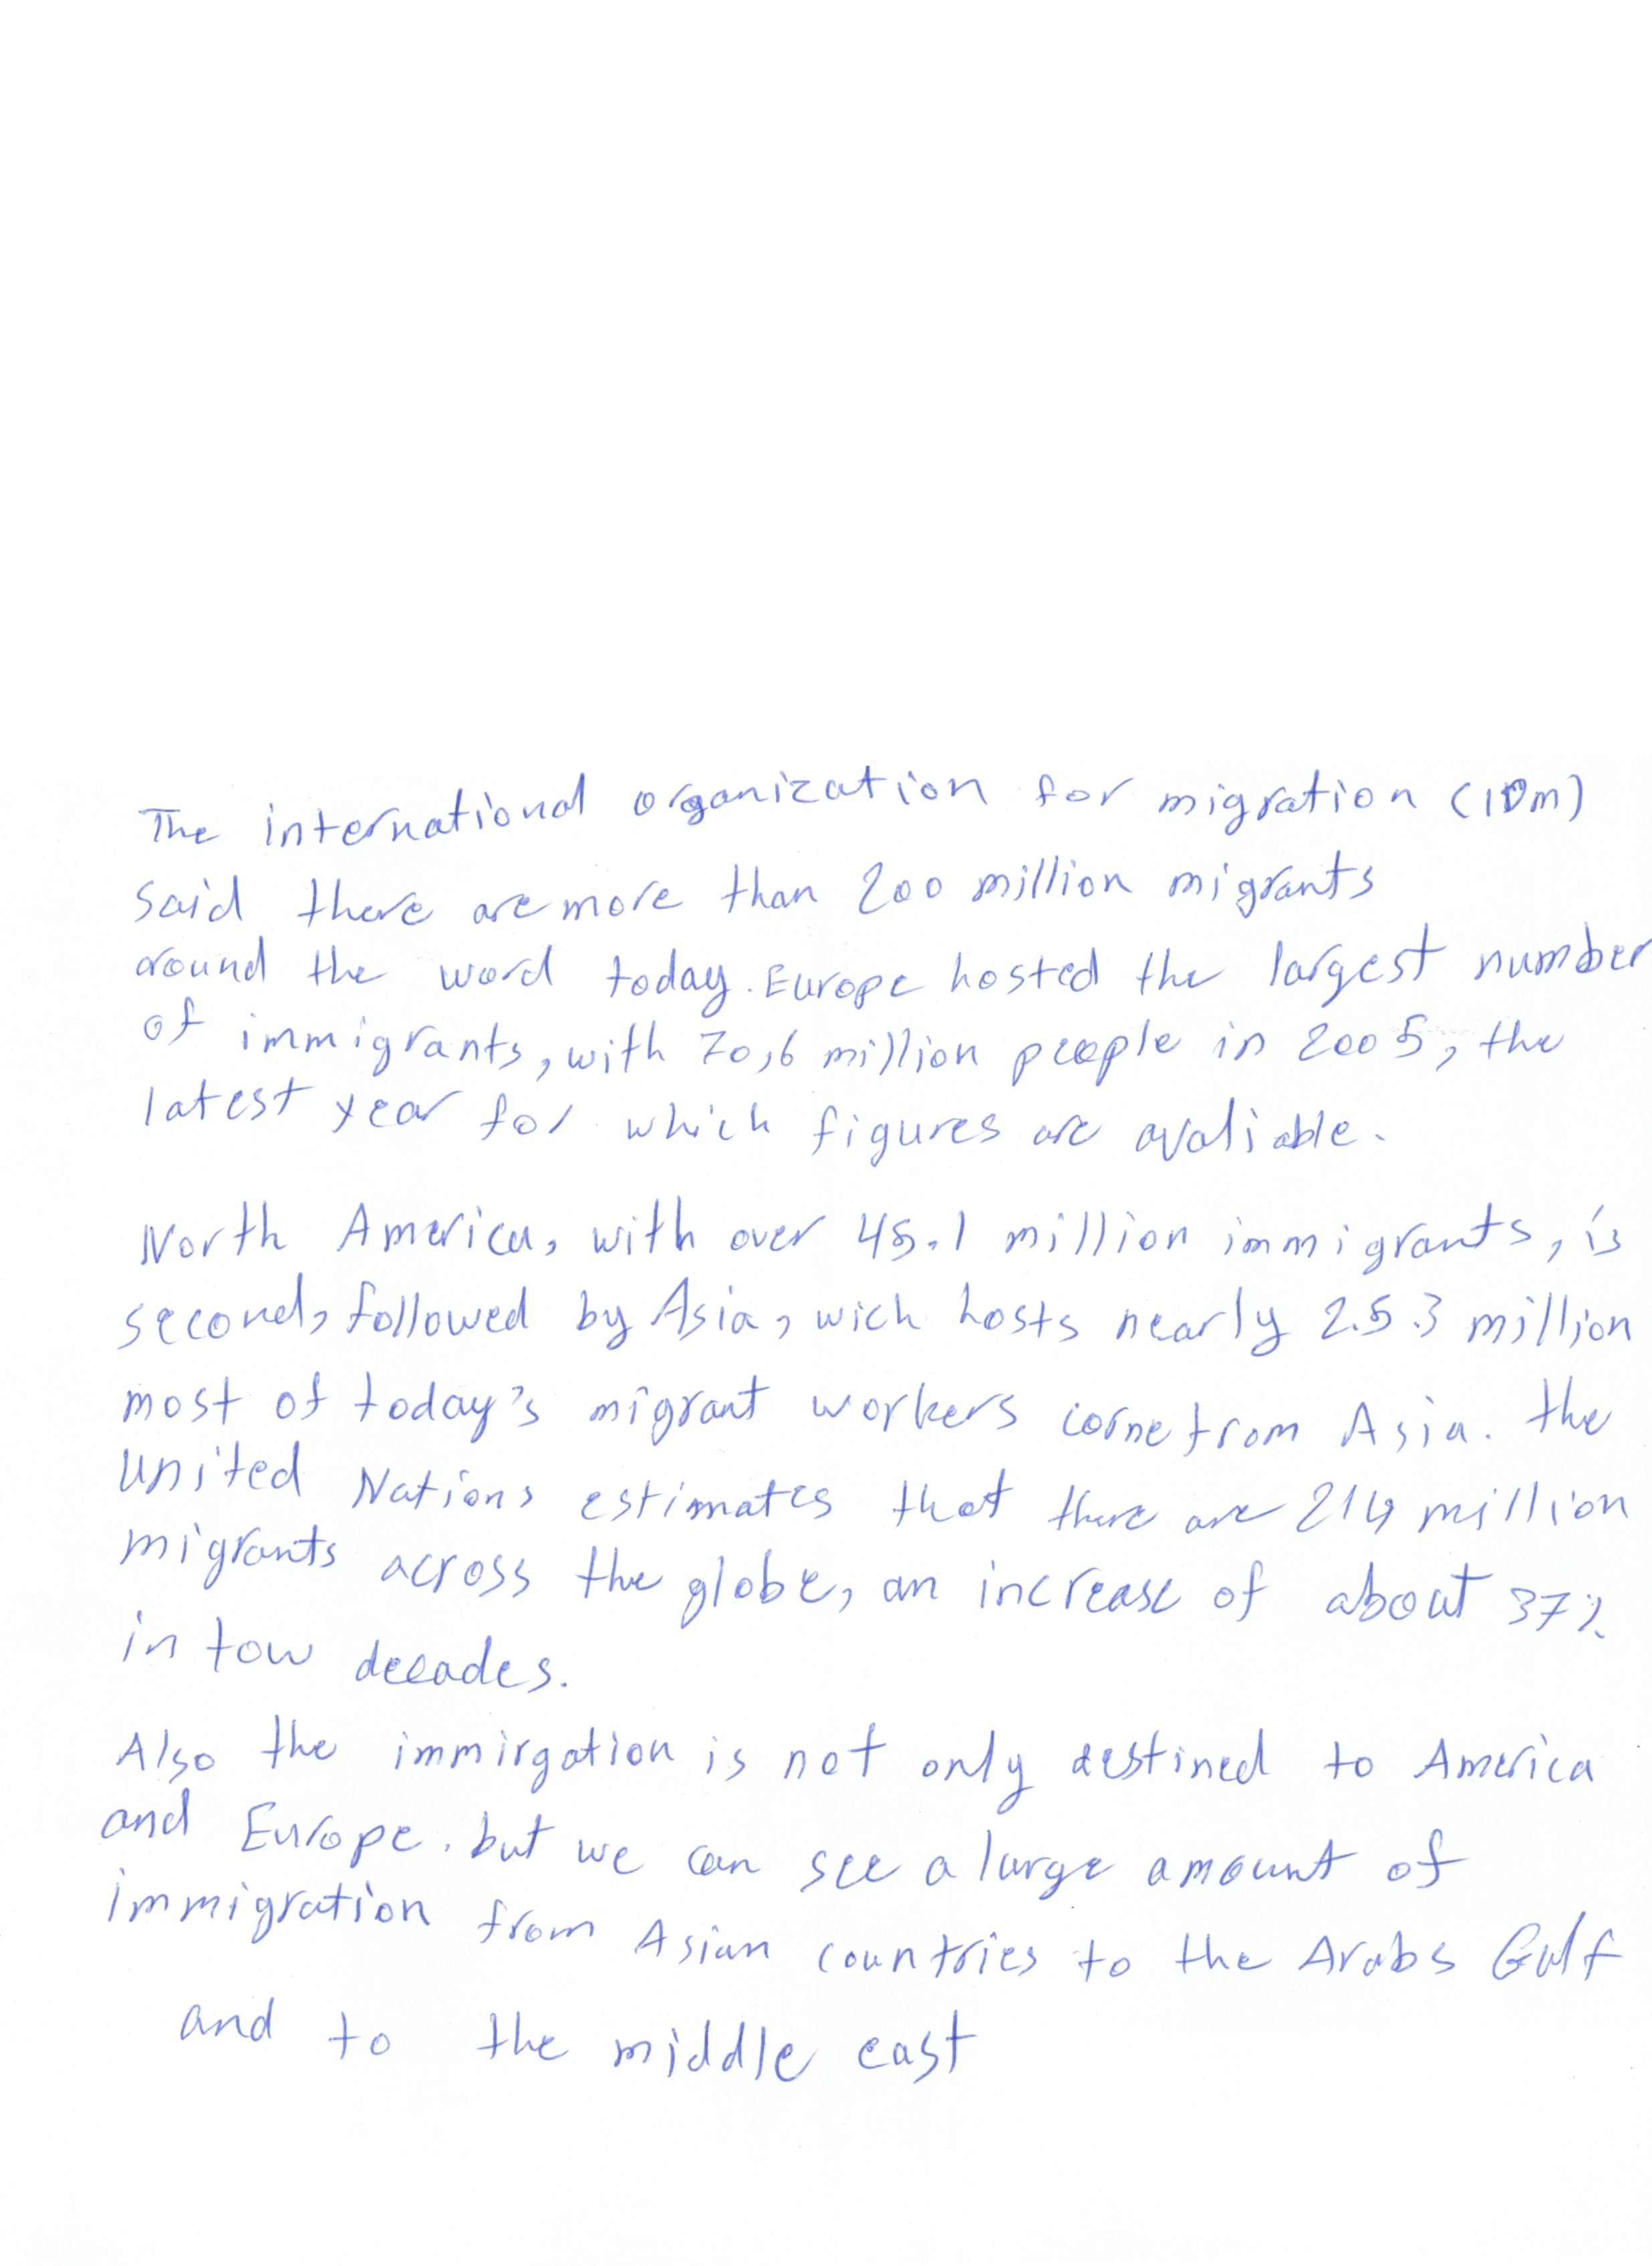 The international organization for migration (IOm)
said there are more than 200 million migrants
around the word today. Europe hosted the largest number
of immigrants, with 70,6 million people in 2005, the
latest year for which figures are avaliable.
North America, with over 45.1 million immigrants, is
second, followed by Asia, wich hosts nearly 2.5.3 million
most of today's migrant workers come from Asia. the
United Nations estimates that there are 214 million
migrants across the globe, an increase of about 37%
in tow decades.
Also the immirgation is not only destined to America
and Europe. but we can see a large amount of
immigration from Asian countries to the Arabs Gulf
and to the middle east